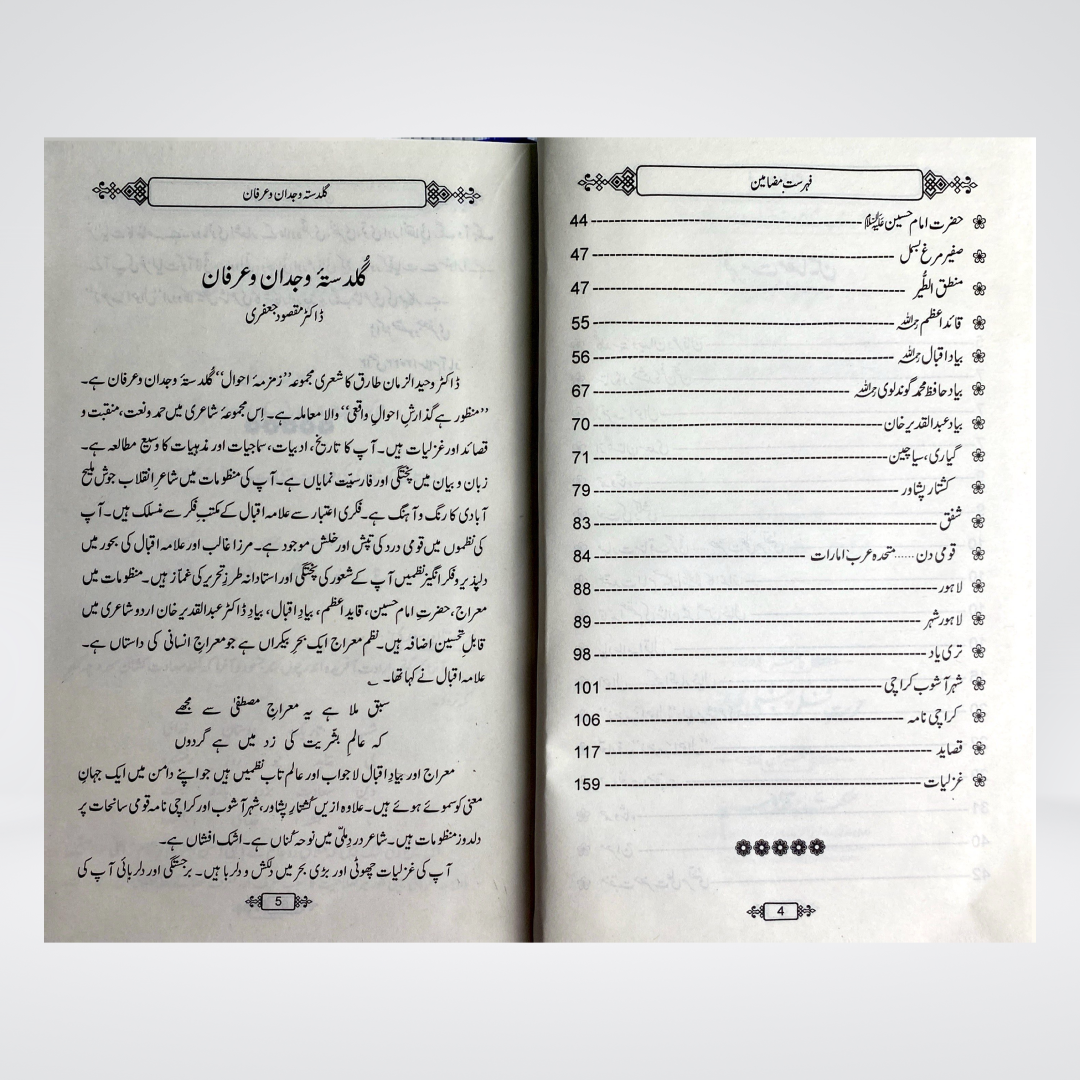 فہرست مضامین
حضرت امام حسین علیہ السلام 44
صفیر مرغ بسمل 47
منطق الطَّیر 47
قائد اعظم رحمہ اللہ 55
بیاد اقبال رحمہ اللہ 56
بیاد حافظ محمد گوندلوی رحمہ اللہ 67
بیاد عبدالقدیر خان 70
گیاری، سیاچین 71
کشتار پشاور 79
شفق 83
قومی دن ...... متحدہ عرب امارات 84
لاہور 88
لاہور شہر 89
تری یاد 98
شہر آشوب کراچی 101
کراچی نامہ 106
قصاید 117
غزلیات 159
4
گلدستہ وجدان و عرفان
گُلدستۂ وجدان و عرفان
ڈاکٹر مقصود جعفری
ڈاکٹر وحید الزمان طارق کا شعری مجموعہ ”زمزمۂ احوال“ گُلدستۂ وجدان و عرفان ہے۔
”منظور ہے گذارشِ احوالِ واقعی“ والا معاملہ ہے۔ اِس مجموعۂ شاعری میں حمد و نعت، منقبت و
قصائد اور غزلیات ہیں۔ آپ کا تاریخ، ادبیات، سماجیات اور مذہبیات کا وسیع مطالعہ ہے۔
زبان و بیان میں پختگی اور فارسیّت نمایاں ہے۔ آپ کی منظومات میں شاعرِ انقلاب جوش ملیح
آبادی کا رنگ و آہنگ ہے۔ فکری اعتبار سے علامہ اقبال کے مکتبِ فکر سے منسلک ہیں۔ آپ
کی نظموں میں قومی درد کی تپش اور خلش موجود ہے۔ مرزا غالب اور علامہ اقبال کی بحور میں
دلپذیر و فکر انگیز نظمیں آپ کے شعور کی پختگی اور استادانہ طرزِ تحریر کی غماز ہیں۔ منظومات میں
معراج، حضرتِ امام حسین، قایدِ اعظم، بیادِ اقبال، بیادِ ڈاکٹر عبدالقدیر خان اردو شاعری میں
قابلِ تحسین اضافہ ہیں۔ نظم معراج ایک بحرِ بیکراں ہے جو معراجِ انسانی کی داستاں ہے۔
علامہ اقبال نے کہا تھا۔
سبق ملا ہے یہ معراجِ مصطفیٰؐ سے مجھے
کہ عالمِ بشریت کی زد میں ہے گردوں
معراج اور بیادِ اقبال لاجواب اور عالم تاب نظمیں ہیں جو اپنے دامن میں ایک جہانِ
معنی کو سموئے ہوئے ہیں۔ علاوہ ازیں کشتارِ پشاور، شہر آشوب اور کراچی نامہ قومی سانحات پر
دلدوز منظومات ہیں۔ شاعر دردِ ملّی میں نوحہ کُناں ہے۔ اشک افشاں ہے۔
آپ کی غزلیات چھوٹی اور بڑی بحر میں دلکش و دلربا ہیں۔ برجستگی اور دلربائی آپ کی
5